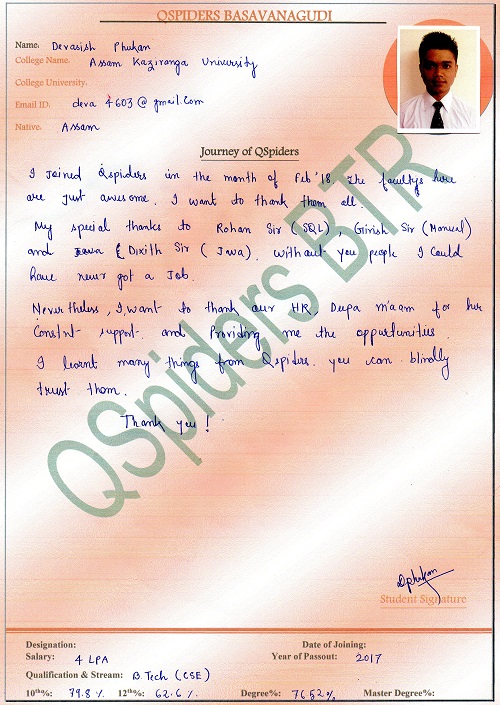 QSPIDERS BASAVANAGUDI
Name. Devasish Phukan
College Name. Assam Kaziranga University
College University.
Email ID. deva 4603@gmail.com
Native. Assam
Journey of QSpiders
I joined Qspiders in the month of Feb'18. The facultys here
are Just awesome. I want to thank them all.
My special thanks to Rohan Sir (SQL), Girish Sir (Manual)
and & Dixith Sir (Java). Without you people I Could
have never got a Job.
Nevertheless, I want to thank our HR, Deepa ma'am for her
Constnt support. and Providing me the oppurtunities.
I learnt many things from Qspiders. you can blindly
trust them.
Thank you!
QSpiders BTR
Dphukan
Student Signature
Designation: Date of Joining:
Salary: 4 LPA Year of Passout: 2017
Qualification & Stream: B.Tech (CSE)
10th%: 79.8 % 12th%: 62.6 % Degree%: 76.52 % Master Degree%: